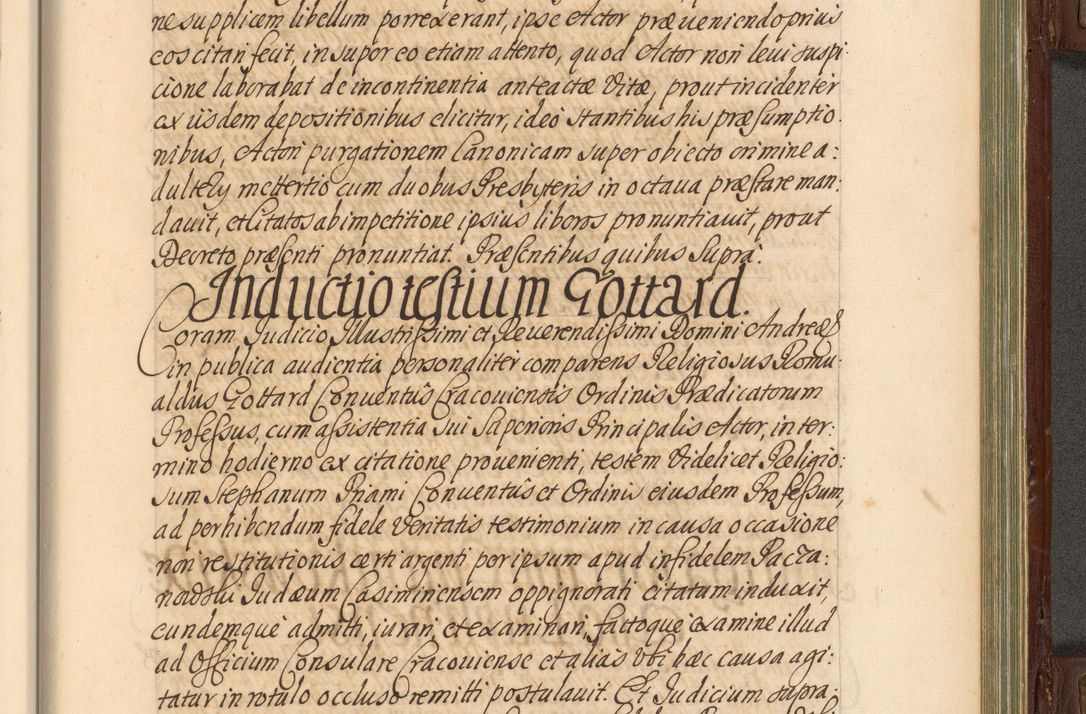 ne supplicem libellum porrexerant, ipse Actor præveniendo prius
eos citari fecit, insuper eo etiam attento, quod Actor non levi suspi-
cione laborabat de incontinentia anteactæ Vitæ, prout incidenter
ex iisdem depositionibus elicitur, ideo stantibus his præsumptio-
nibus, Actori purgationem Canonicam super obiecto crimine a:
dultery mettertio cum duobus Presbyteris in octava præstare man:
davit, et Citatos ab impetitione ipsius liberos pronuntiavit, prout
Decreto præsenti pronuntiat. Præsentibus quibus Supra.
Inductio testium Gottard.
Coram Judicio Illustrissimi et Reverendissimi Domini Andreæ
in publica audientia personaliter comparens Religiosus Romu-
aldus Gottard Conventûs Cracoviensis Ordinis Prædicatorum
Professus, cum assistentia sui Superioris Principalis Actor, in ter:
mino hodierno ex citatione provenienti, testem Videlicet Religio:
sum Stephanum Priami Conventûs et Ordinis eiusdem Professum,
ad perhibendum fidele Veritatis testimonium in causa occasione
non restitutionis certi argenti per ipsum apud infidelem Pacza-
nowski Judæum Casimiriensem oppignorati citatum induxit,
eundemque admitti, iurari, et examinari, factoque examine illud
ad Officium Consulare Cracoviense et alias Ubi hæc causa agi:
tatur in rotulo occluso remitti postulavit. Et Judicium supra-